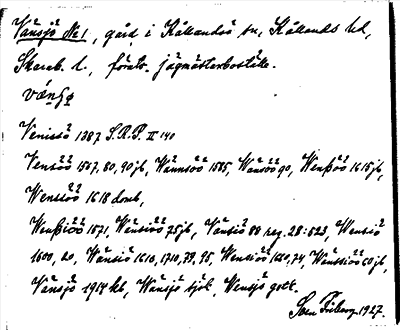 Vänsjö № 1, gård i Kållandsö sn, Kållands hd,
Skarab. l., förutv. jägmästarboställe.
Venissö 1387 S.R.P. II 140
Vensöö 1567, 80, 90 jb, Wännsöö 1585, Wänsöö 90, Wenßöö 1615 jb,
Wenssöö 1618 domb,
Wenßiöö 1671, Wänsiöö 75 jb, Vänsiö 88 reg. 28:523, Wensiö
1600, 20, Wänsiö 1610, 1710, 79, 95, Wensiöö 1650, 74, Wänsiöö 60 jb,
Vänsjö 1914 kb, Wänsjö sjök, Wensjö getk.
1927.